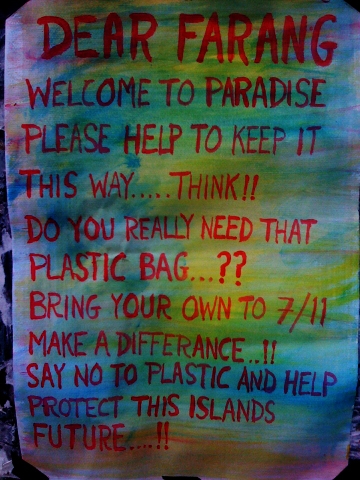 DEAR FARANG
WELCOME TO PARADISE
PLEASE HELP TO KEEP IT
THIS WAY.....THINK!!
DO YOU REALLY NEED THAT
PLASTIC BAG...??
BRING YOUR OWN TO 7/11
MAKE A DIFFERANCE..!!
SAY NO TO PLASTIC AND HELP
PROTECT THIS ISLANDS
FUTURE....!!